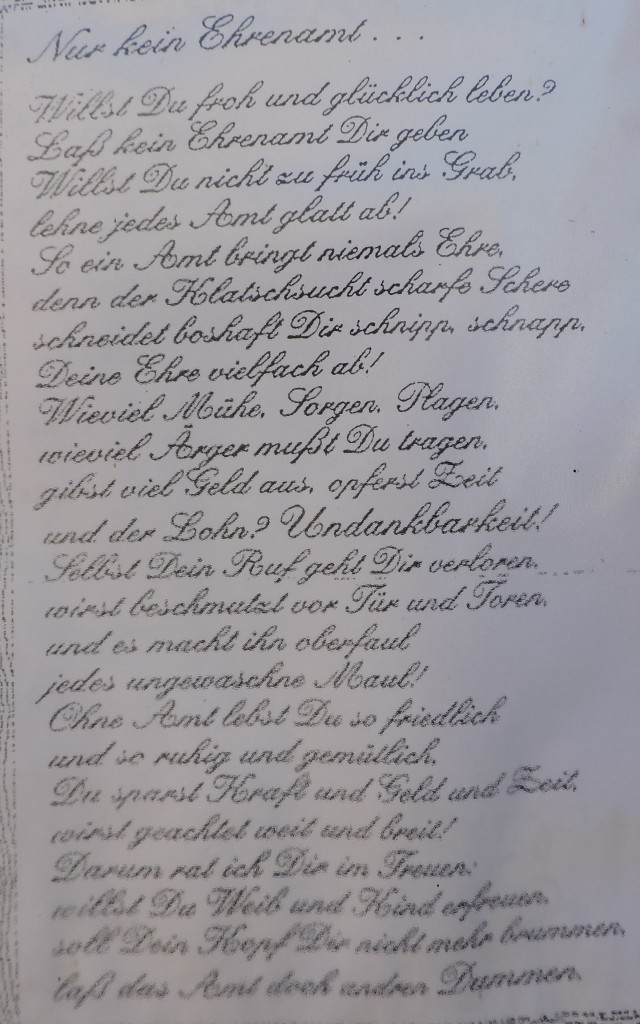 Nur kein Ehrenamt . . .
Willst Du froh und glücklich leben?
Laß kein Ehrenamt Dir geben
Willst Du nicht zu früh ins Grab,
lehne jedes Amt glatt ab!
So ein Amt bringt niemals Ehre,
denn der Klatschsucht scharfe Schere
schneidet boshaft Dir schnipp, schnapp,
Deine Ehre vielfach ab!
Wieviel Mühe, Sorgen, Plagen,
wieviel Ärger mußt Du tragen,
gibst viel Geld aus, opferst Zeit
und der Lohn? Undankbarkeit!
Selbst Dein Ruf geht Dir verloren,
wirst beschmutzt vor Tür und Toren,
und es macht ihn oberfaul
jedes ungewaschne Maul!
Ohne Amt lebst Du so friedlich
und so ruhig und gemütlich,
Du sparst Kraft und Geld und Zeit,
wirst geachtet weit und breit!
Darum rat ich Dir im Treuen:
willst Du Weib und Kind erfreuen,
soll Dein Kopf Dir nicht mehr brummen,
laß das Amt doch andren Dummen.